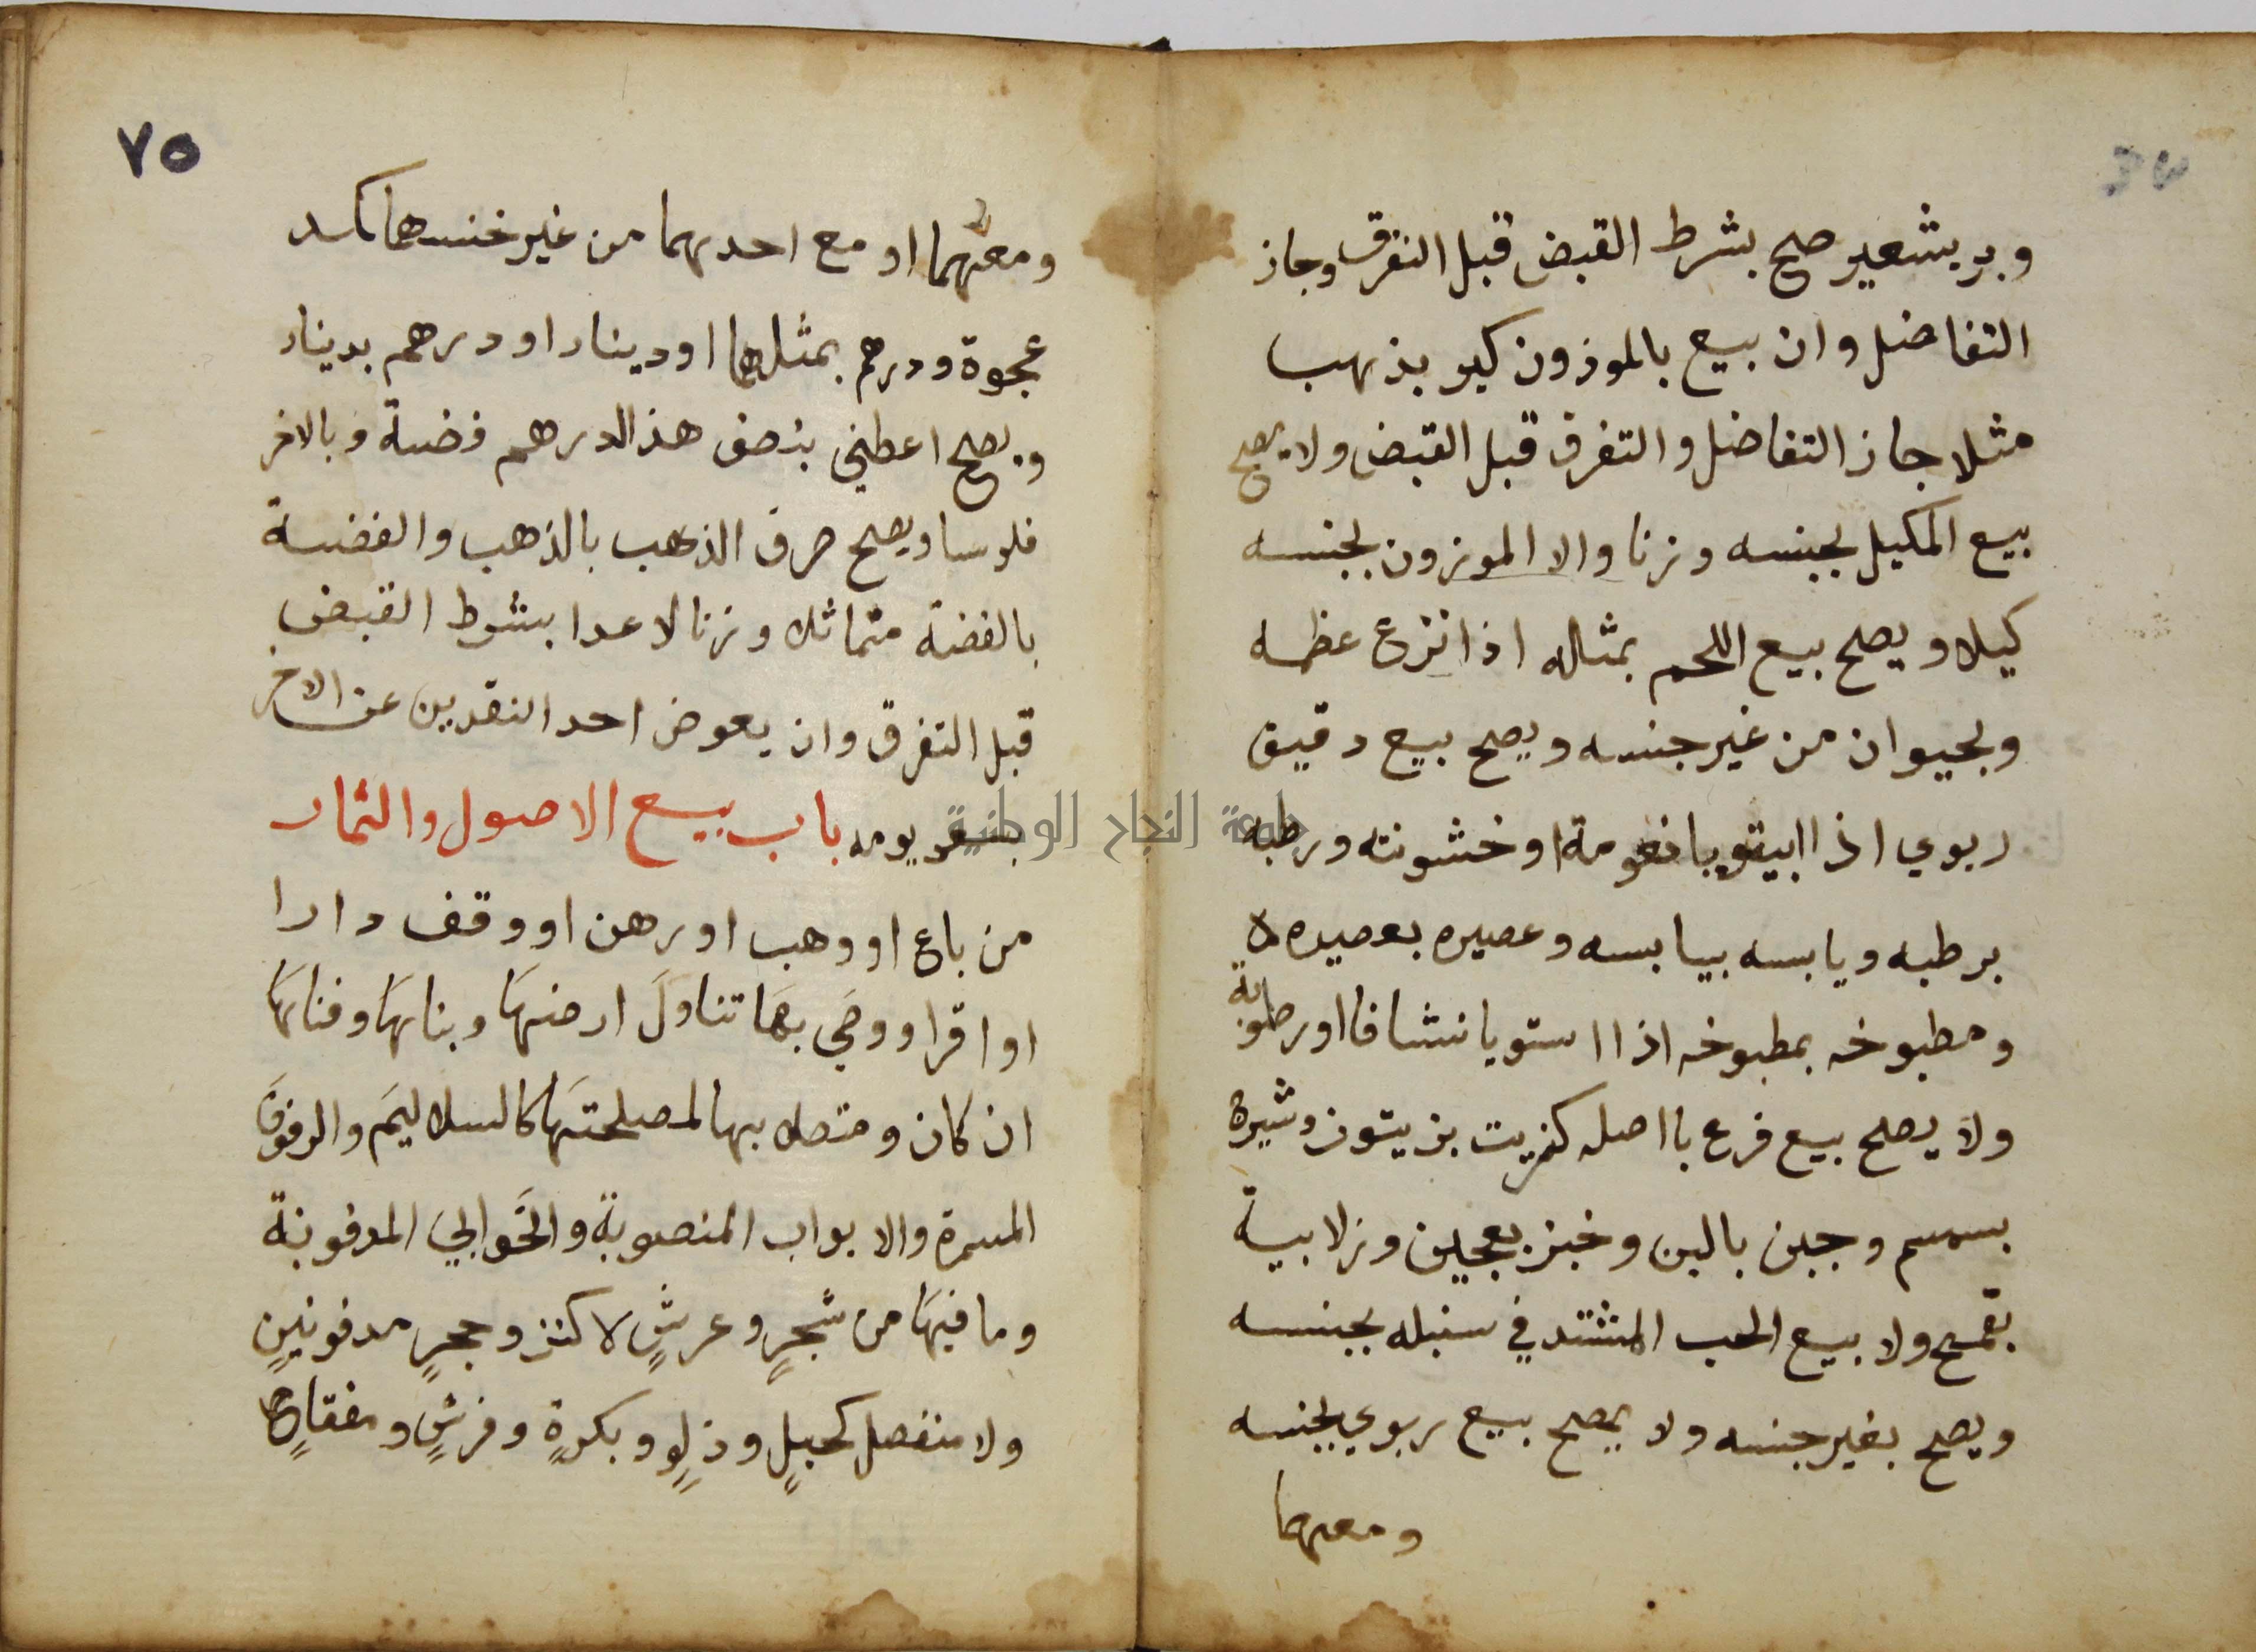 وبر بشعير صح بشرط القبض قبل التفرق وجاز
التفاضل وان بيع بالموزون كبر بذهب
مثلا جاز التفاضل والتفرق قبل القبض ولا يصح
بيع المكيل بجنسه وزنا والا الموزون بجنسه
كيلا ويصح بيع اللحم بمثاله اذا نزع عظمه
وبحيوان من غير جنسه ويصح بيع دقيق
ربوي اذا نعومة او خشونته ورطبه
برطبه ويابسه بيابسه وعصيره بعصيره
ومطبوخه بمطبوخه اذا استويا نشافا او رطوبة
ولا يصح بيع فرع باصله كزيت بزيتون وشيرة
بسمسم وجبن بالبن وخبز بعجين وزلابية
بقمح ولا بيع الحب المشتد في سنبله بجنسه
ويصح بغير جنسه ولا يصح بيع ربوي بجنسه
ومعهما
٧٥
ومعهما او مع احدهما من غير جنسهما كمد
عجوة ودرهم بمثلهما او دينار او درهم بدينار
ويصح اعطني بنصف هذالدرهم فضة وبالاخر
فلوسا ويصح صرف الذهب بالذهب والفضة
بالفضة متماثلا وزنا لا عدا بشرط القبض
قبل التفرق وان يعوض احد النقدين عن الاخر
بسعر يومه باب بيع الاصول والثمار
من باع او وهب او رهن او وقف دارا
او اقر او وصي بهَا تناولَ ارضهَا وبنائهَا وفنائهَا
ان كان ومتصلا بها لمصلحتهَا كالسلاليمَ والرفوفَ
المسمرة والابواب المنصوبة والخَوابيَ المدفونة
وما فيهَا من شجرٍ وعرشٍ لا كنز وحجرٍ مدفونينٍ
ولا منفصل كحبلٍ ودلوٍ وبكرةٍ وفرشٍ ومفتاحٍ
جامعة النجاح الوطنية